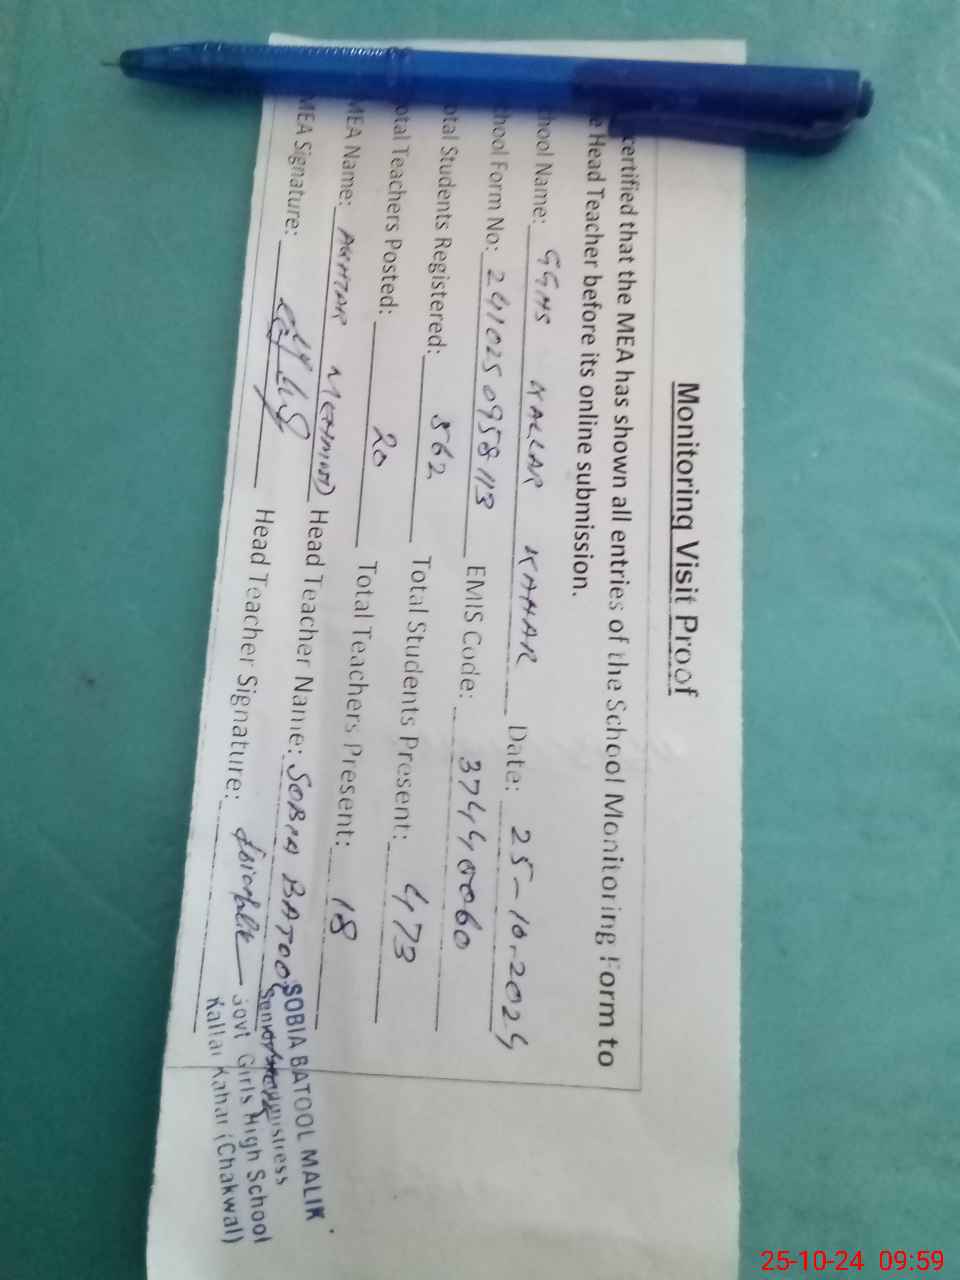 Monitoring Visit Proof
certified that the MEA has shown all entries of the School Monitoring Form to
e Head Teacher before its online submission.
hool Name: GGHS KALLAR KAHAR Date: 25-10-2024
hool Form No: 2410250958113 EMIS Code: 37440060
otal Students Registered: 562 Total Students Present: 473
otal Teachers Posted: 20 Total Teachers Present: 18
MEA Name: AKHTAR MEHMOOD Head Teacher Name: SOBIA BATOOL
MEA Signature: Head Teacher Signature:
SOBIA BATOOL MALIK
Senior
Govt Girls High School
Kallar Kahar (Chakwal)
25-10-24 09:59